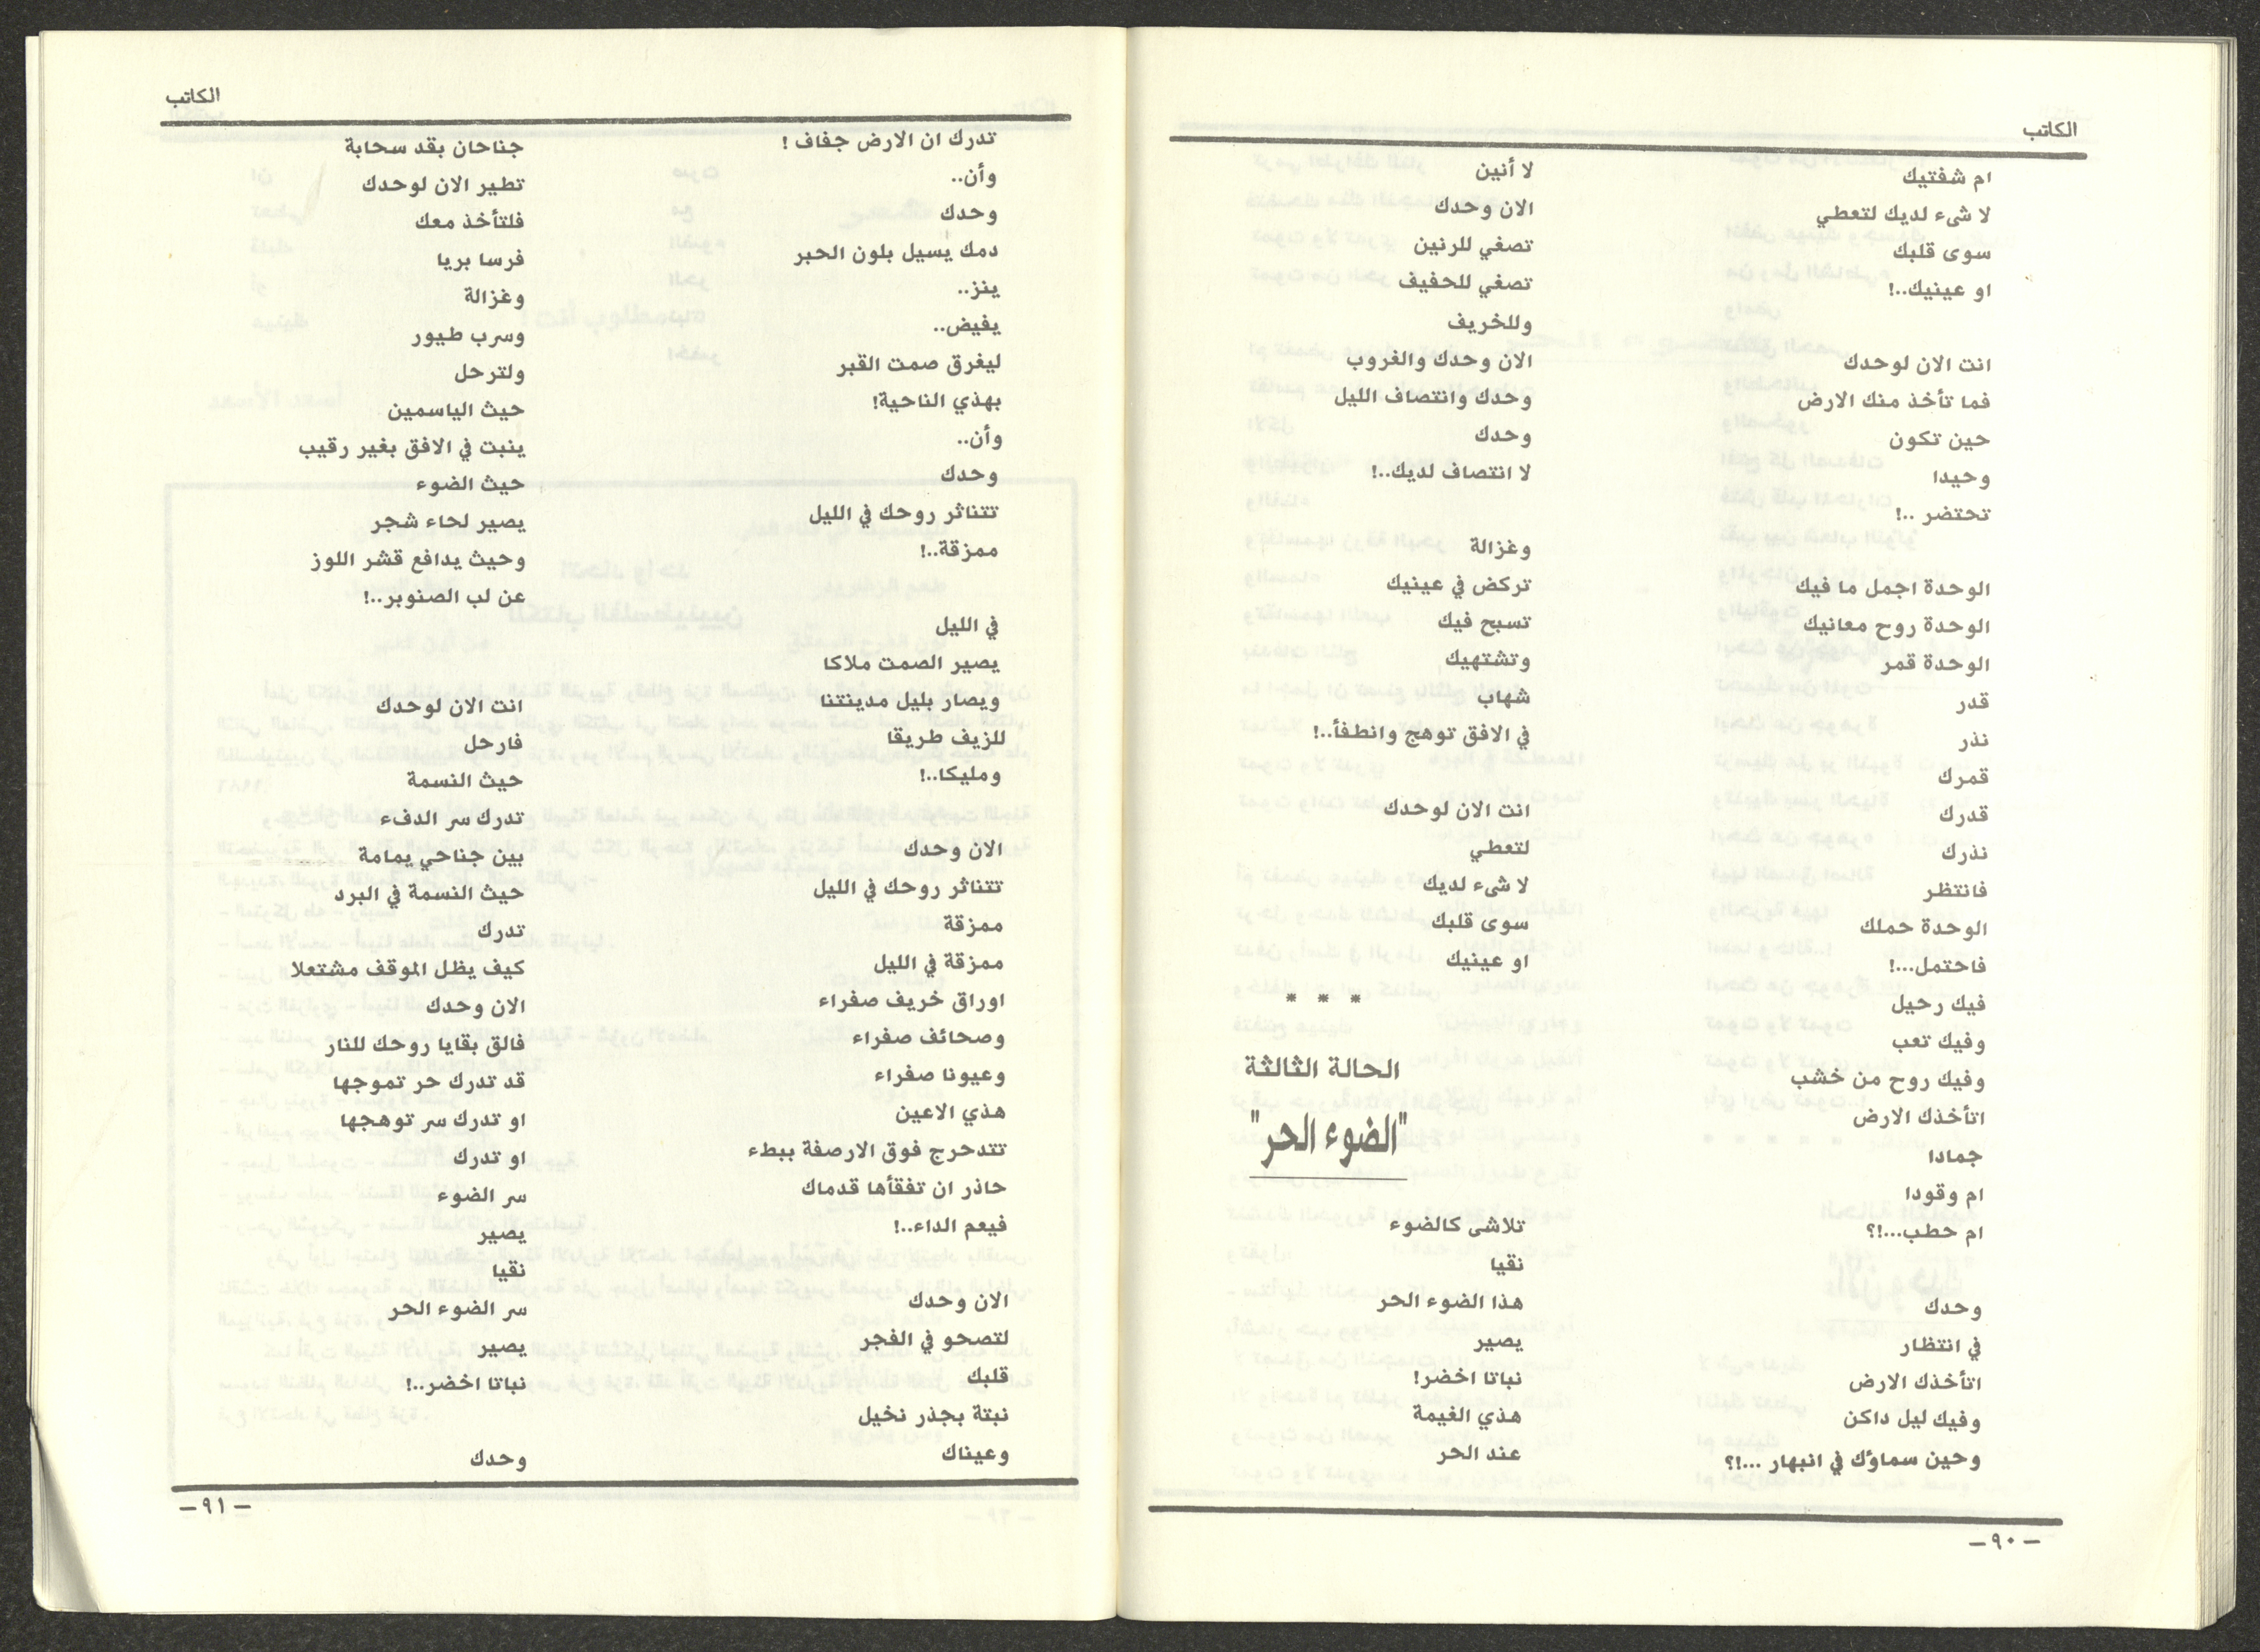 الكاتب
ام شفتيك
لا شىء لديك لتعطي
سوى قلبك
او عينيك..!
انت الان لوحدك
فما تأخذ منك الارض
حين تكون
وحيدا
تحتضر ..!
الوحدة اجمل ما فيك
الوحدة روح معانيك
الوحدة قمر
قدر
نذر
قمرك
قدرك
نذرك
فانتظر
الوحدة حملك
فاحتمل...!
فيك رحيل
وفيك تعب
وفيك روح من خشب
اتأخذك الارض
جمادا
ام وقودا
ام حطب...!؟
وحدك
في انتظار
اتأخذك الارض
وفيك ليل داكن
وحين سماؤك في انبهار ...!؟
لا أنين
الان وحدك
تصغي للرنين
تصغي للحفيف
وللخريف
الان وحدك والغروب
وحدك وانتصاف الليل
وحدك
لا انتصاف لديك..!
وغزالة
تركض في عينيك
تسبح فيك
وتشتهيك
شهاب
في الافق توهج وانطفأ..!
انت الان لوحدك
لتعطي
لا شىء لديك
سوى قلبك
او عينيك
* * *
الحالة الثالثة
"الضوء الحر"
تلاشى كالضوء
نقيا
هذا الضوء الحر
يصير
نباتا اخضر!
هذي الغيمة
عند الحر
-٩٠-
الكاتب
تدرك ان الارض جفاف !
وأن..
وحدك
دمك يسيل بلون الحبر
ينز..
يفيض..
ليغرق صمت القبر
بهذي الناحية!
وأن..
وحدك
تتناثر روحك في الليل
ممزقة..!
في الليل
يصير الصمت ملاكا
ويصار بليل مدينتنا
للزيف طريقا
ومليكا..!
الان وحدك
تتناثر روحك في الليل
ممزقة
ممزقة في الليل
اوراق خريف صفراء
وصحائف صفراء
وعيونا صفراء
هذي الاعين
تتدحرج فوق الارصفة ببطء
حاذر ان تفقأها قدماك
فيعم الداء..!
الان وحدك
لتصحو في الفجر
قلبك
نبتة بجذر نخيل
وعيناك
جناحان بقد سحابة
تطير الان لوحدك
فلتأخذ معك
فرسا بريا
وغزالة
وسرب طيور
ولترحل
حيث الياسمين
ينبت في الافق بغير رقيب
حيث الضوء
يصير لحاء شجر
وحيث يدافع قشر اللوز
عن لب الصنوبر..!
انت الان لوحدك
فارحل
حيث النسمة
تدرك سر الدفء
بين جناحي يمامة
حيث النسمة في البرد
تدرك
كيف يظل الموقف مشتعلا
الان وحدك
فالق بقايا روحك للنار
قد تدرك حر تموجها
او تدرك سر توهجها
او تدرك
سر الضوء
يصير
نقيا
سر الضوء الحر
يصير
نباتا اخضر..!
وحدك
-٩١-